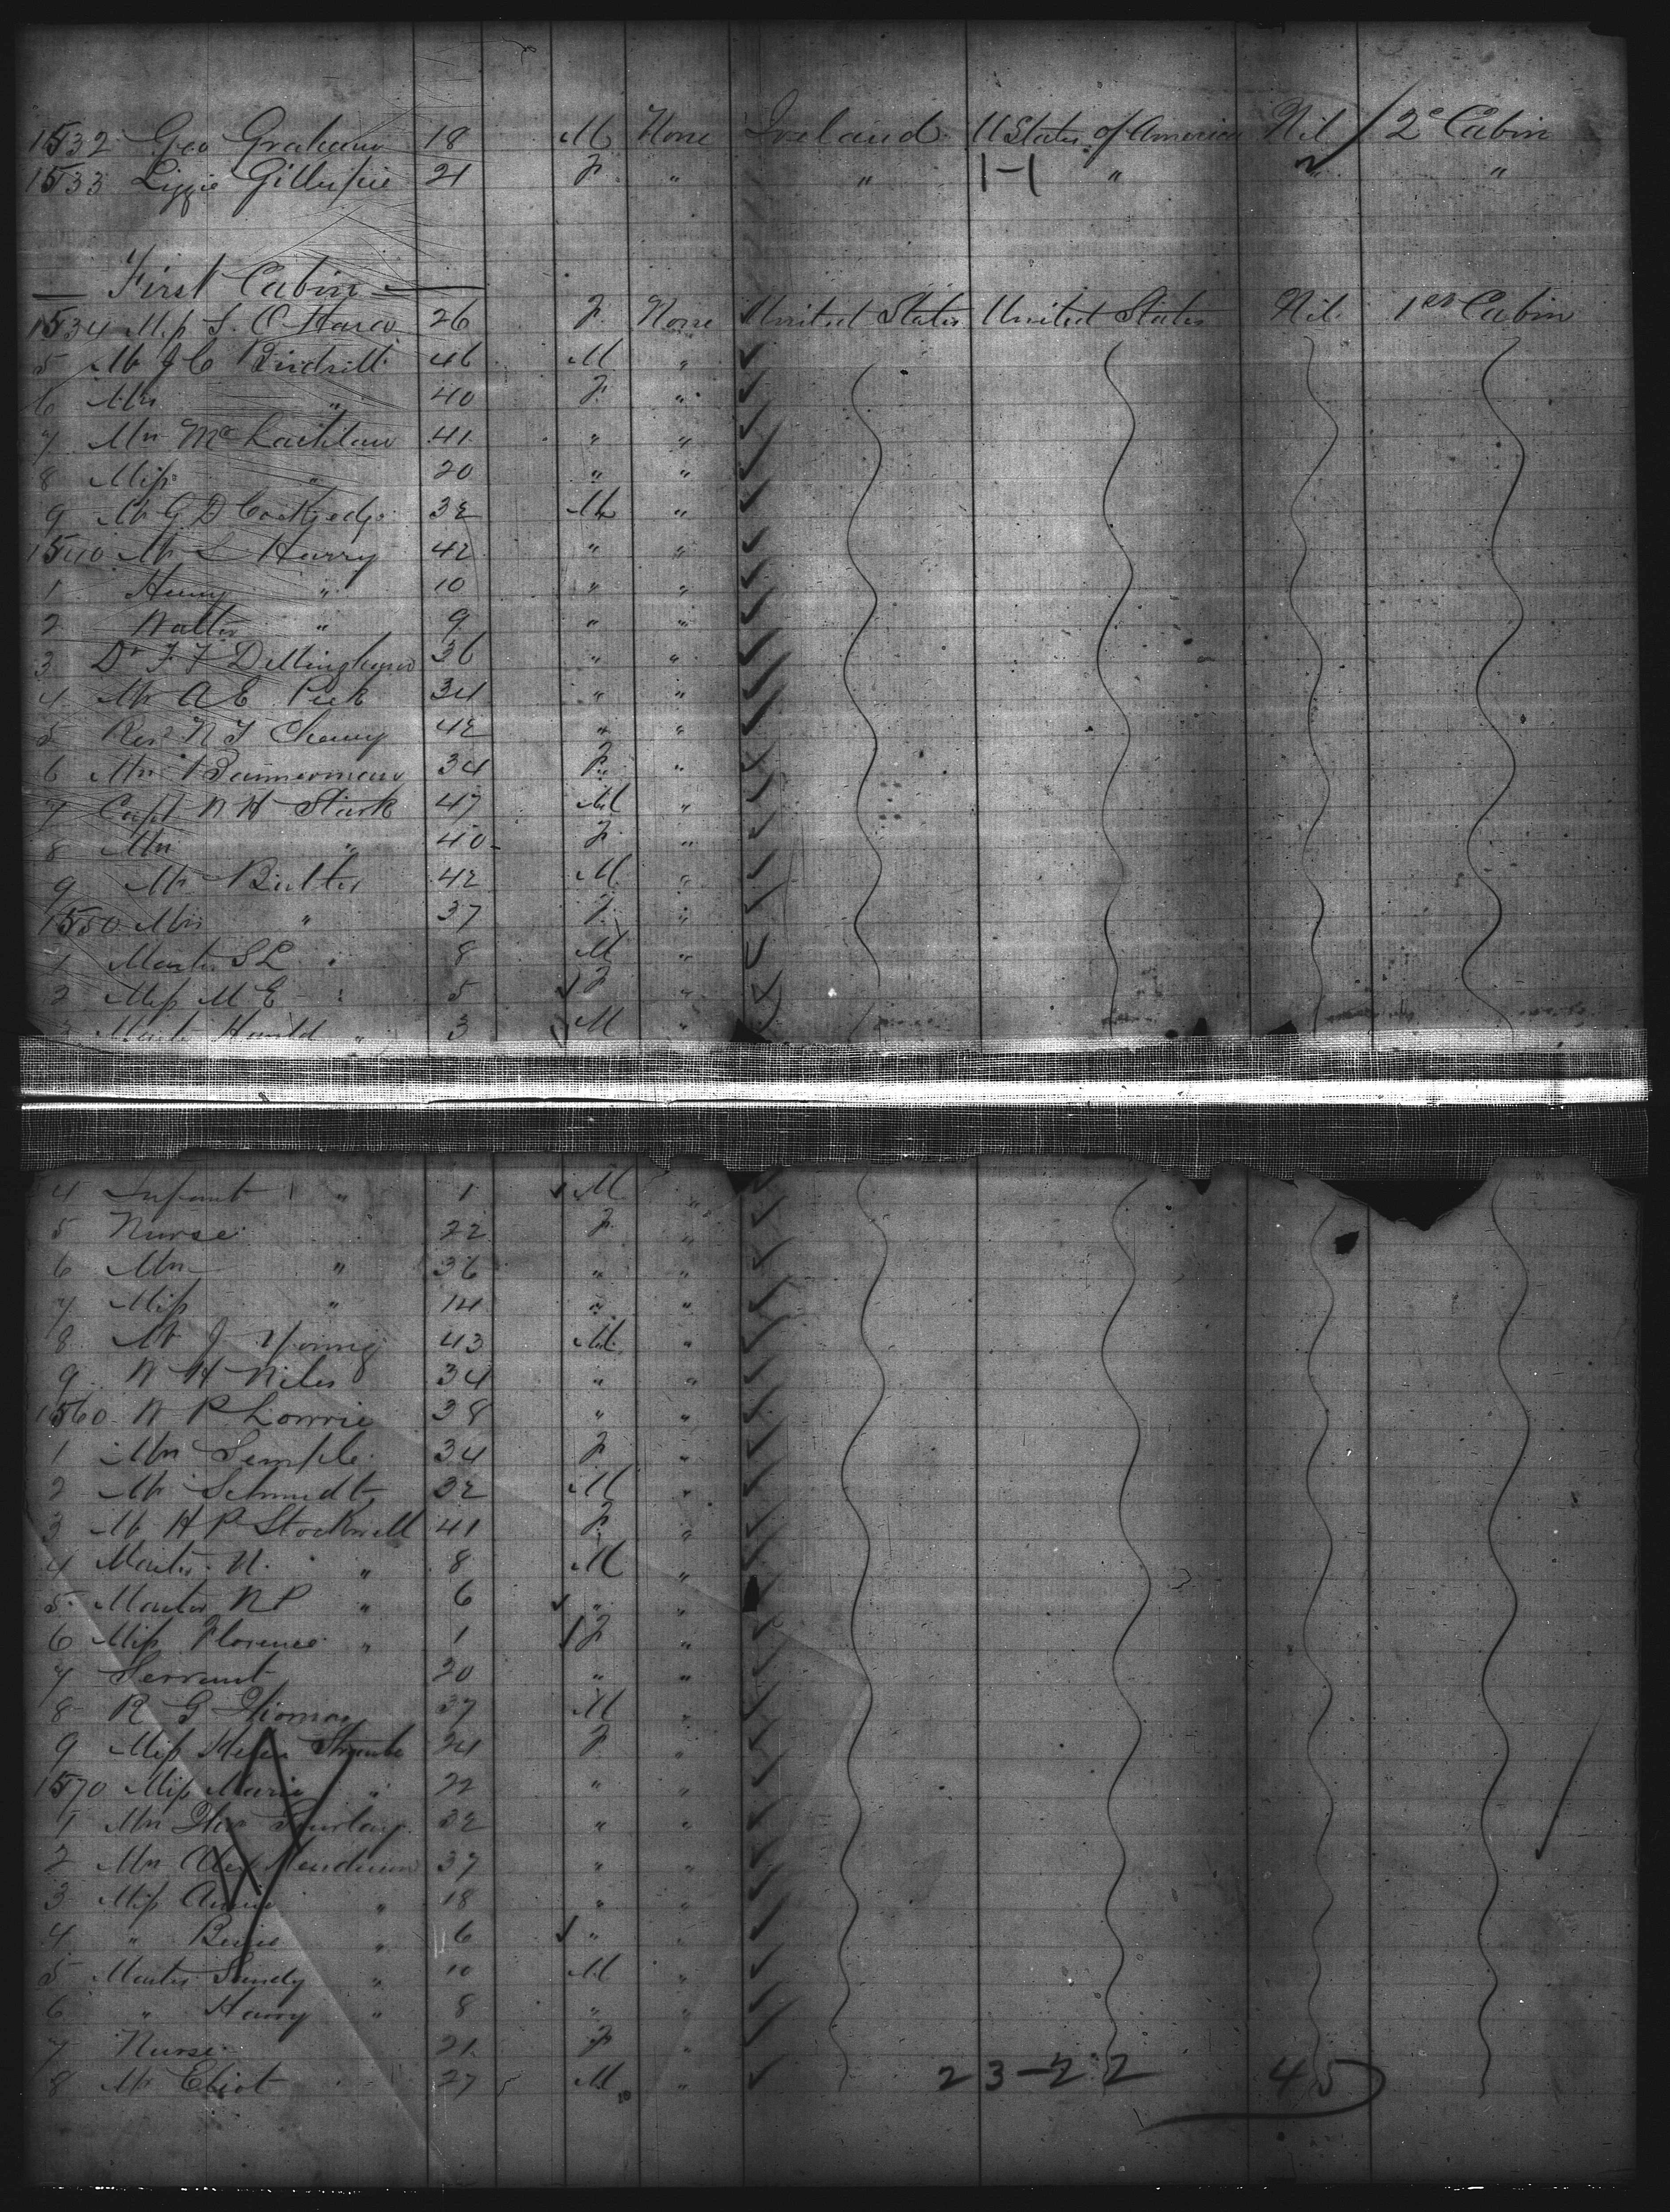 1532 Geo Graham 18 M None Ireland U States of America Nil 2ᵉ Cabin
1533 Lizzie Gillespie 21 F " " 1-1 " " "
— First Cabin —
1534 Miss S. O'Hara 26 F None United States United States Nil 1st Cabin
5 Mr J C 46 M "
6 Mrs " 40 F "
7 Mrs McLachlan 41 " "
8 Miss " 20 " "
9 Mr G D 32 M "
1540 Mr S Harry 42 " "
1 Henry " 10 " "
2 Walter " 9 " "
3 Dr F F Dillingham 36 " "
4 Mr A E Peck 34 " "
5 Revd N F 42 " "
6 Mrs Bannerman 34 F "
7 Capt N H Stark 47 M "
8 Mrs " 40 F "
9 Mr Butler 42 M "
1550 Mrs " 37 F "
1 Master S L " 8 M "
2 Miss M E " 5 F "
3 Master Harold " 3 M "
4 Infant " 1 M "
5 Nurse 22 F "
6 Mrs " 36 " "
7 Miss " 14 " "
8 Mr J Young 43 M "
9 W H Niles 34 " "
1560 W P Lowrie 38 " "
1 Mrs Semple 34 F "
2 Mr Schmidt 32 M "
3 Mr H P Stockwell 41 F "
4 Master N. " 8 M "
5 Master N P " 6 " "
6 Miss Florence " 1 F "
7 Servant 20 " "
8 R G Thomas 37 M "
9 Miss Helen 24 F "
1570 Miss Marie " 22 " "
1 Mrs 32 " "
2 Mrs Alex 37 " "
3 Miss Annie " 18 " "
4 " " 6 " "
5 Master Sandy " 10 M "
6 " Harry " 8 " "
7 Nurse 21 F "
8 Mr Eliot 27 M " 23-22 45